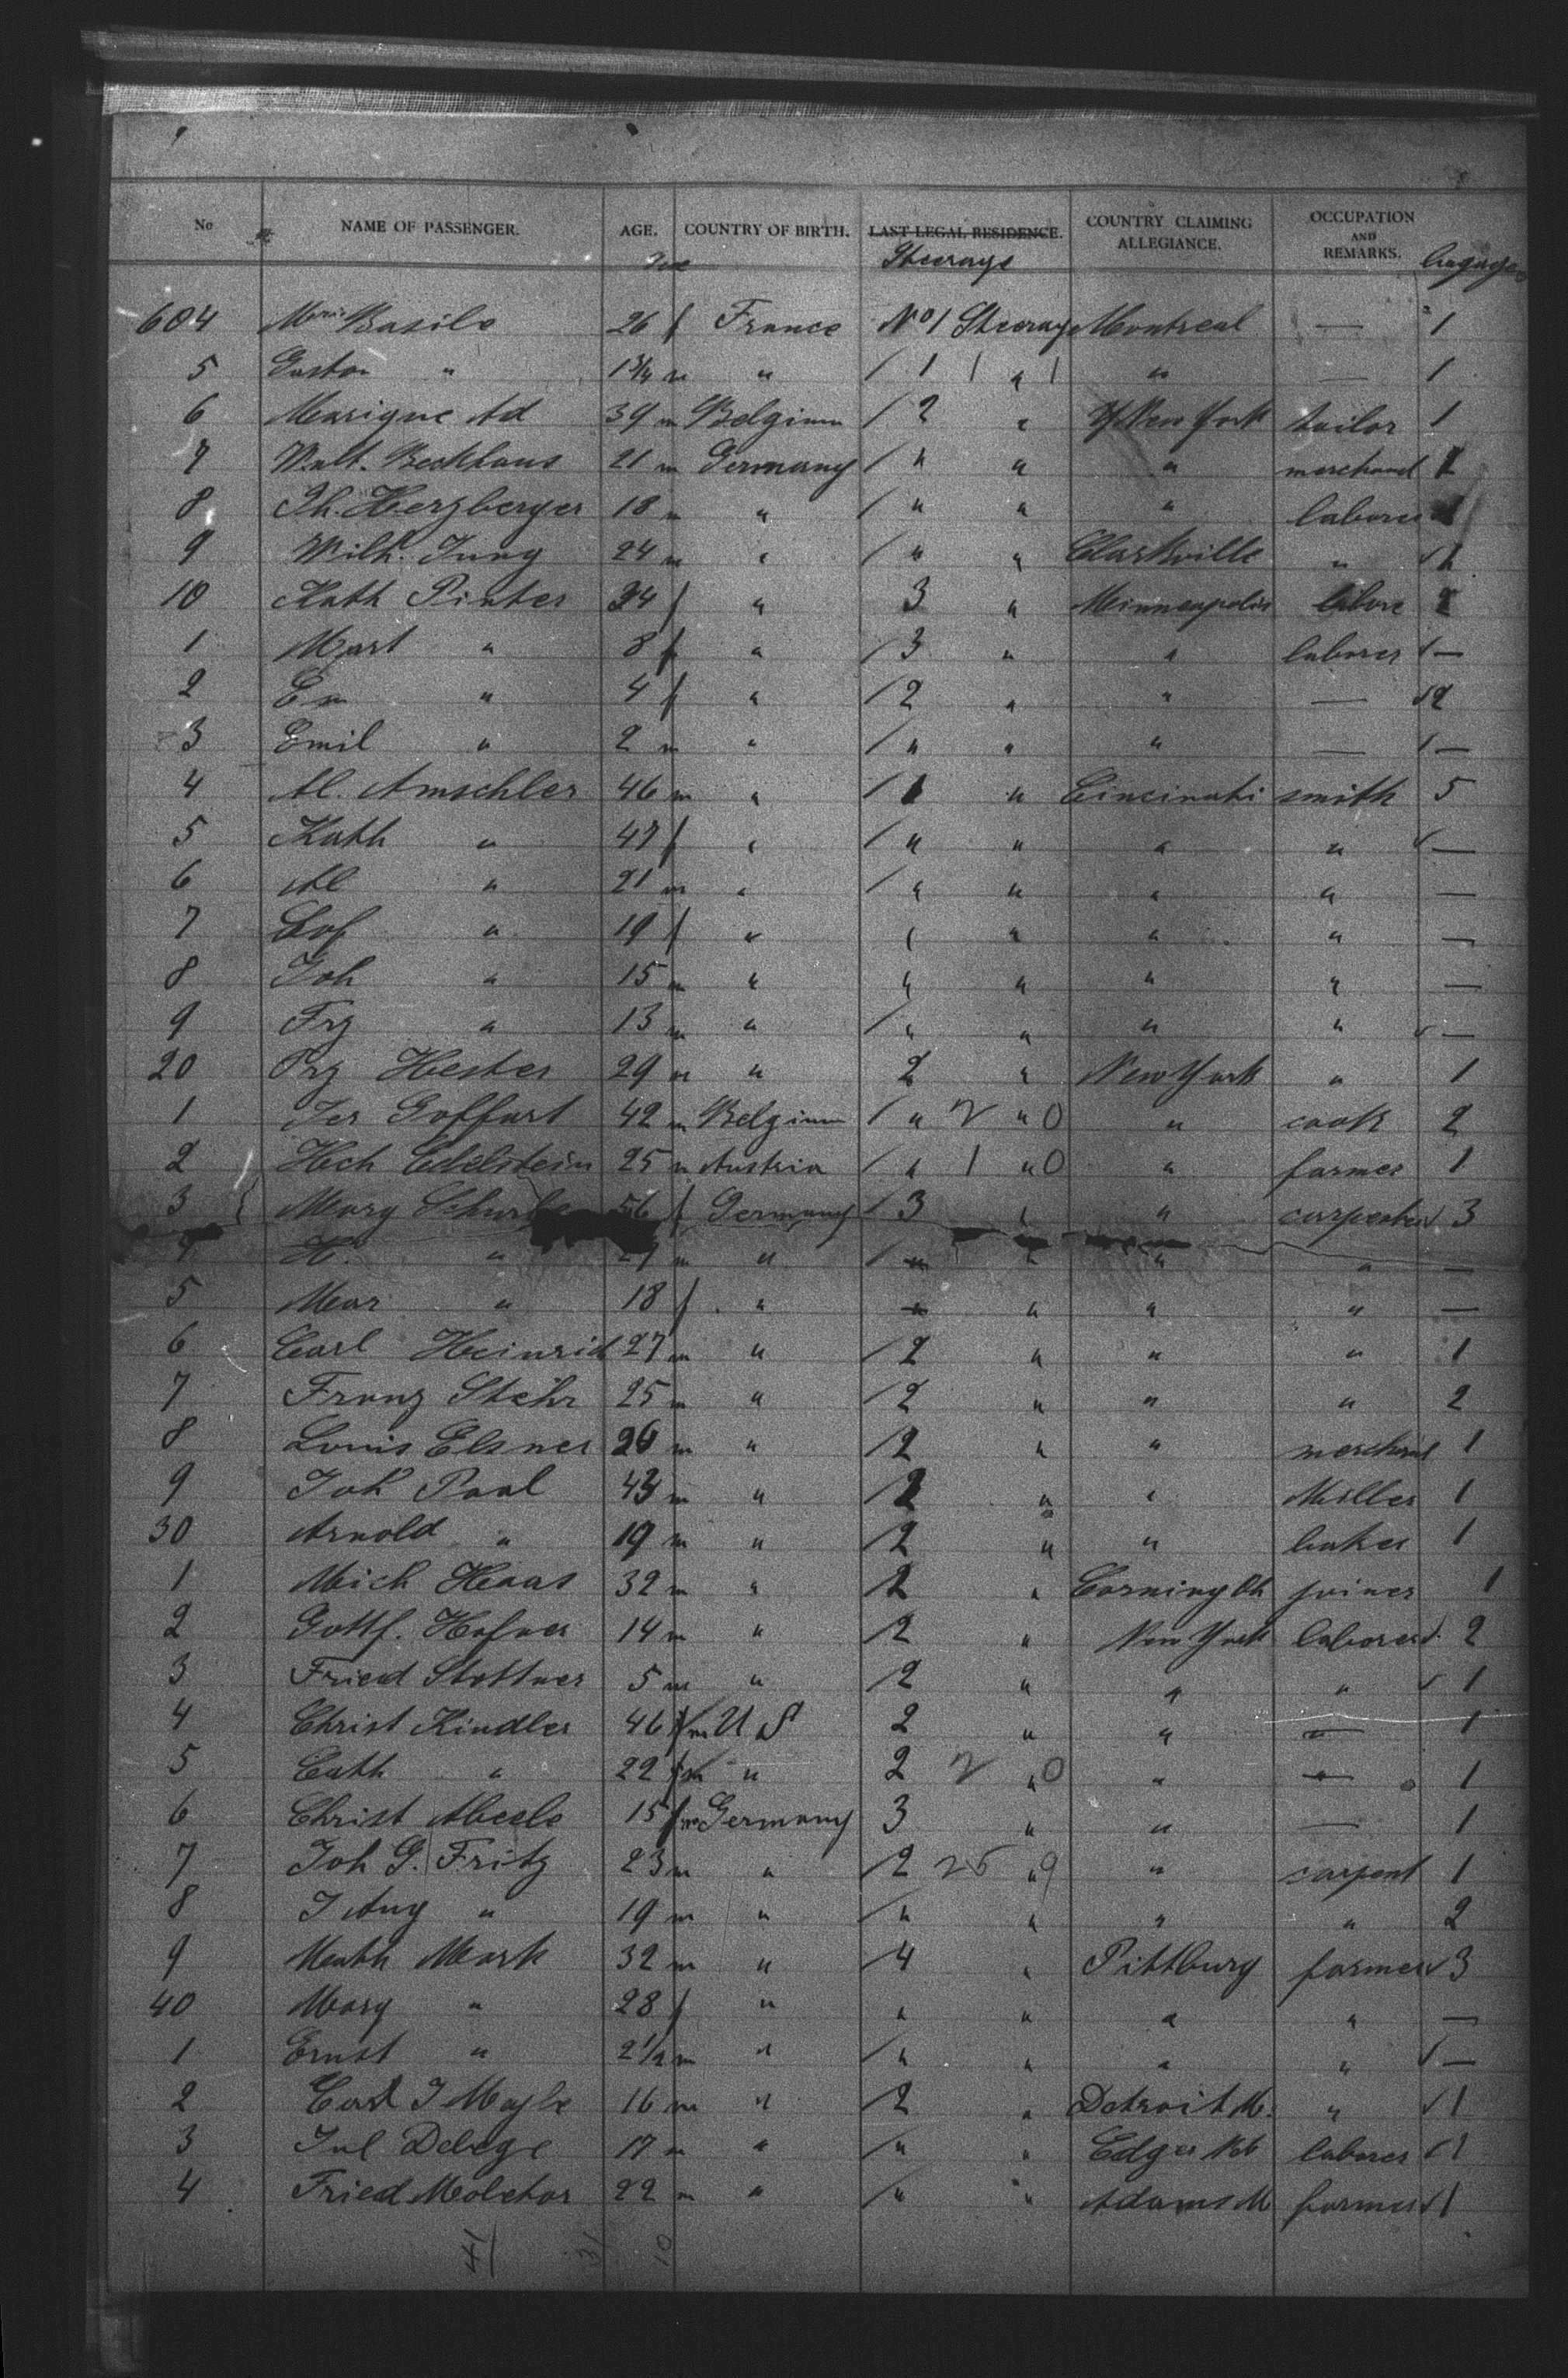 No NAME OF PASSENGER. AGE. COUNTRY OF BIRTH. LAST LEGAL RESIDENCE. COUNTRY CLAIMING ALLEGIANCE. OCCUPATION AND REMARKS.
Steerage
604 Basile 26 f France No 1 Steerage Montreal — 1
5 Gaston " 1¾ m " / 1 | " | " — 1
6 Marique Ad 39 m Belgium / 2 " New York tailor 1
7 Walt. Beckhaus 21 m Germany / " " " merchand
8 Ph. Herzberger 18 m " / " " " laborer
9 Wilh. Jung 24 m " / " " Clarkville "
10 Kath Pinter f " 3 " Minneapolis
1 " 8 f " / 3 " " laborer —
2 Em " 4 f " / 2 " " — 2
3 Emil " 2 m " / " " " — —
4 Al. Amschler 46 m " / 1 " Cincinati smith 5
5 Kath " 47 f " / " " " " —
6 Al " 21 m " / " " " " —
7 " 19 f " " " " —
8 Joh " 15 m " " " " " —
9 Frz " 13 m " / " " " " —
20 Frz Hester 29 m " 2 " New York " 1
1 Jer Goffart 42 m Belgium / " 2 " 0 " cook 2
2 Hch Edelstein 25 m Austria / " 1 " 0 " farmer 1
3 Mary 56 f Germany / 3 " " carpenter 3
4 H. " 27 m " / " " " " —
5 Mar " 18 f " " " " " —
6 Carl Heinrich 27 m " / 2 " " " 1
7 Franz Stehr 25 m " / 2 " " " 2
8 Louis Elsner m " / 2 " " merchand 1
9 Joh Paal 43 m " / 2 " " Miller 1
30 Arnold " 19 m " / 2 " " baker 1
1 Mich Haas 32 m " / 2 " Corning Oh joiner 1
2 Gottf. Hafner 14 m " / 2 " New York laborer 2
3 Fried Stottner 5 m " / 2 " " " 1
4 Christ Kindler 46 m U S 2 " " — 1
5 Cath " 22 " 2 2 " 0 " — 1
6 Christ Abeele 15 Germany 3 " " — 1
7 Joh G. Fritz 23 m " / 2 25 " 9 " carpent 1
8 J Aug " 19 m " / " " " " 2
9 Math Mark 32 m " / 4 " Pittburg farmer 3
40 Mary " 28 f " " " " " —
1 Ernst " 2½ m " / " " " " —
2 Carl J 16 m " / 2 " Detroit M. " 1
3 Jul Delege 17 m " / " " Edgar Neb laborer 1
4 Fried Molchor 22 m " / " " Adams M farmer 1
41 31 10